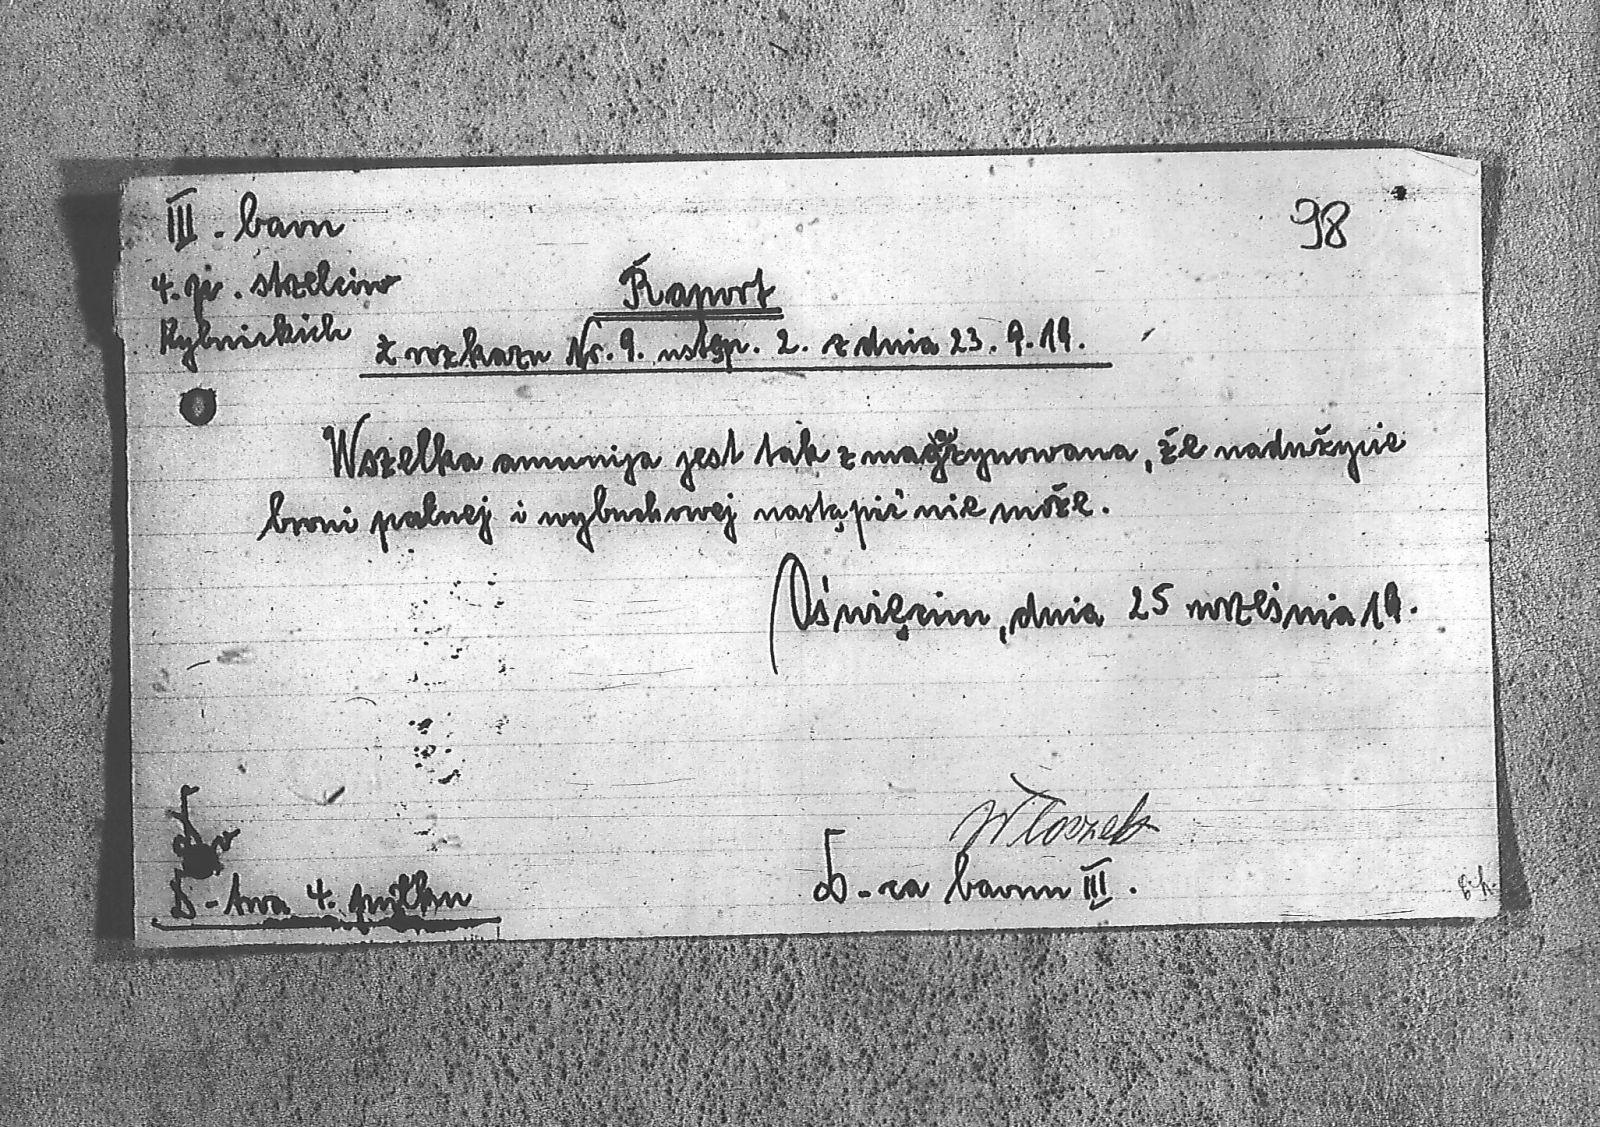 III. baon
98
4. p. strzelców
Raport
Rybnickich
z rozkazu Nr. 9. ustęp. 2. z dnia 23.9.19.
Wszelka amunija jest tak zmagazynowana, że nadużycie
broni palnej i wybuchowej nastąpić nie może.
Oświęcim, dnia 25 września 19.
Wloczek
D-ca baonu III.
D-twa 4. pułku